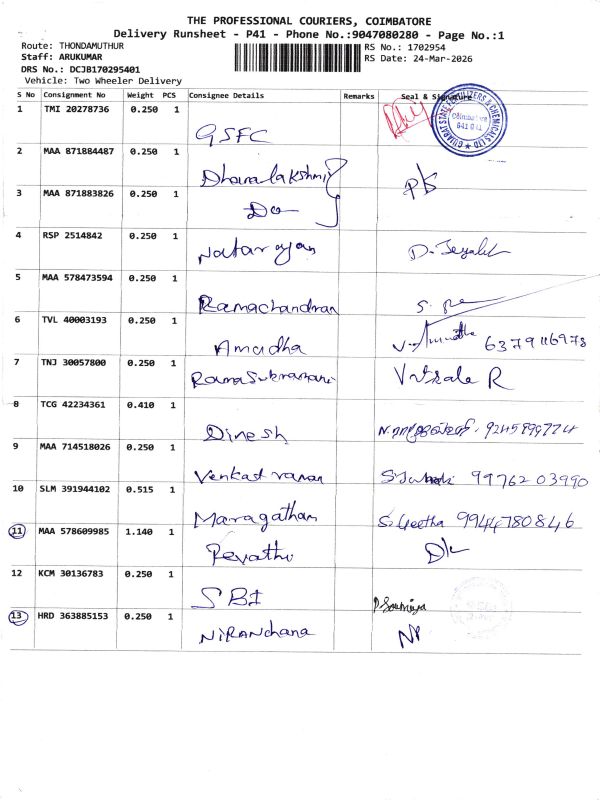 THE PROFESSIONAL COURIERS, COIMBATORE
Delivery Runsheet - P41 - Phone No.:9047080280 - Page No.:1
Route: THONDAMUTHUR
RS No.: 1702954
Staff: ARUKUMAR
RS Date: 24-Mar-2026
DRS No.: DCJB170295401
Vehicle: Two Wheeler Delivery
S No Consignment No Weight PCS Consignee Details Remarks Seal & Signature
1 TMI 20278736 0.250 1 GSFC
GUJARAT STATE FERTILIZERS & CHEMICALS LTD Coimbatore 641 011
2 MAA 871884487 0.250 1 Dhanalakshmi
3 MAA 871883826 0.250 1 Do
4 RSP 2514842 0.250 1 Natarajan
5 MAA 578473594 0.250 1 Ramachandran
6 TVL 40003193 0.250 1 Amudha 6379116978
7 TNJ 30057800 0.250 1 Ramasubramani R
8 TCG 42234361 0.410 1 Dinesh
9 MAA 714518026 0.250 1 99762 03990
10 SLM 391944102 0.515 1 Maragatham S. Geetha 9944780846
11 MAA 578609985 1.140 1 Revathi
12 KCM 30136783 0.250 1 SBI P. Soumiya
13 HRD 363885153 0.250 1 NiRANchana